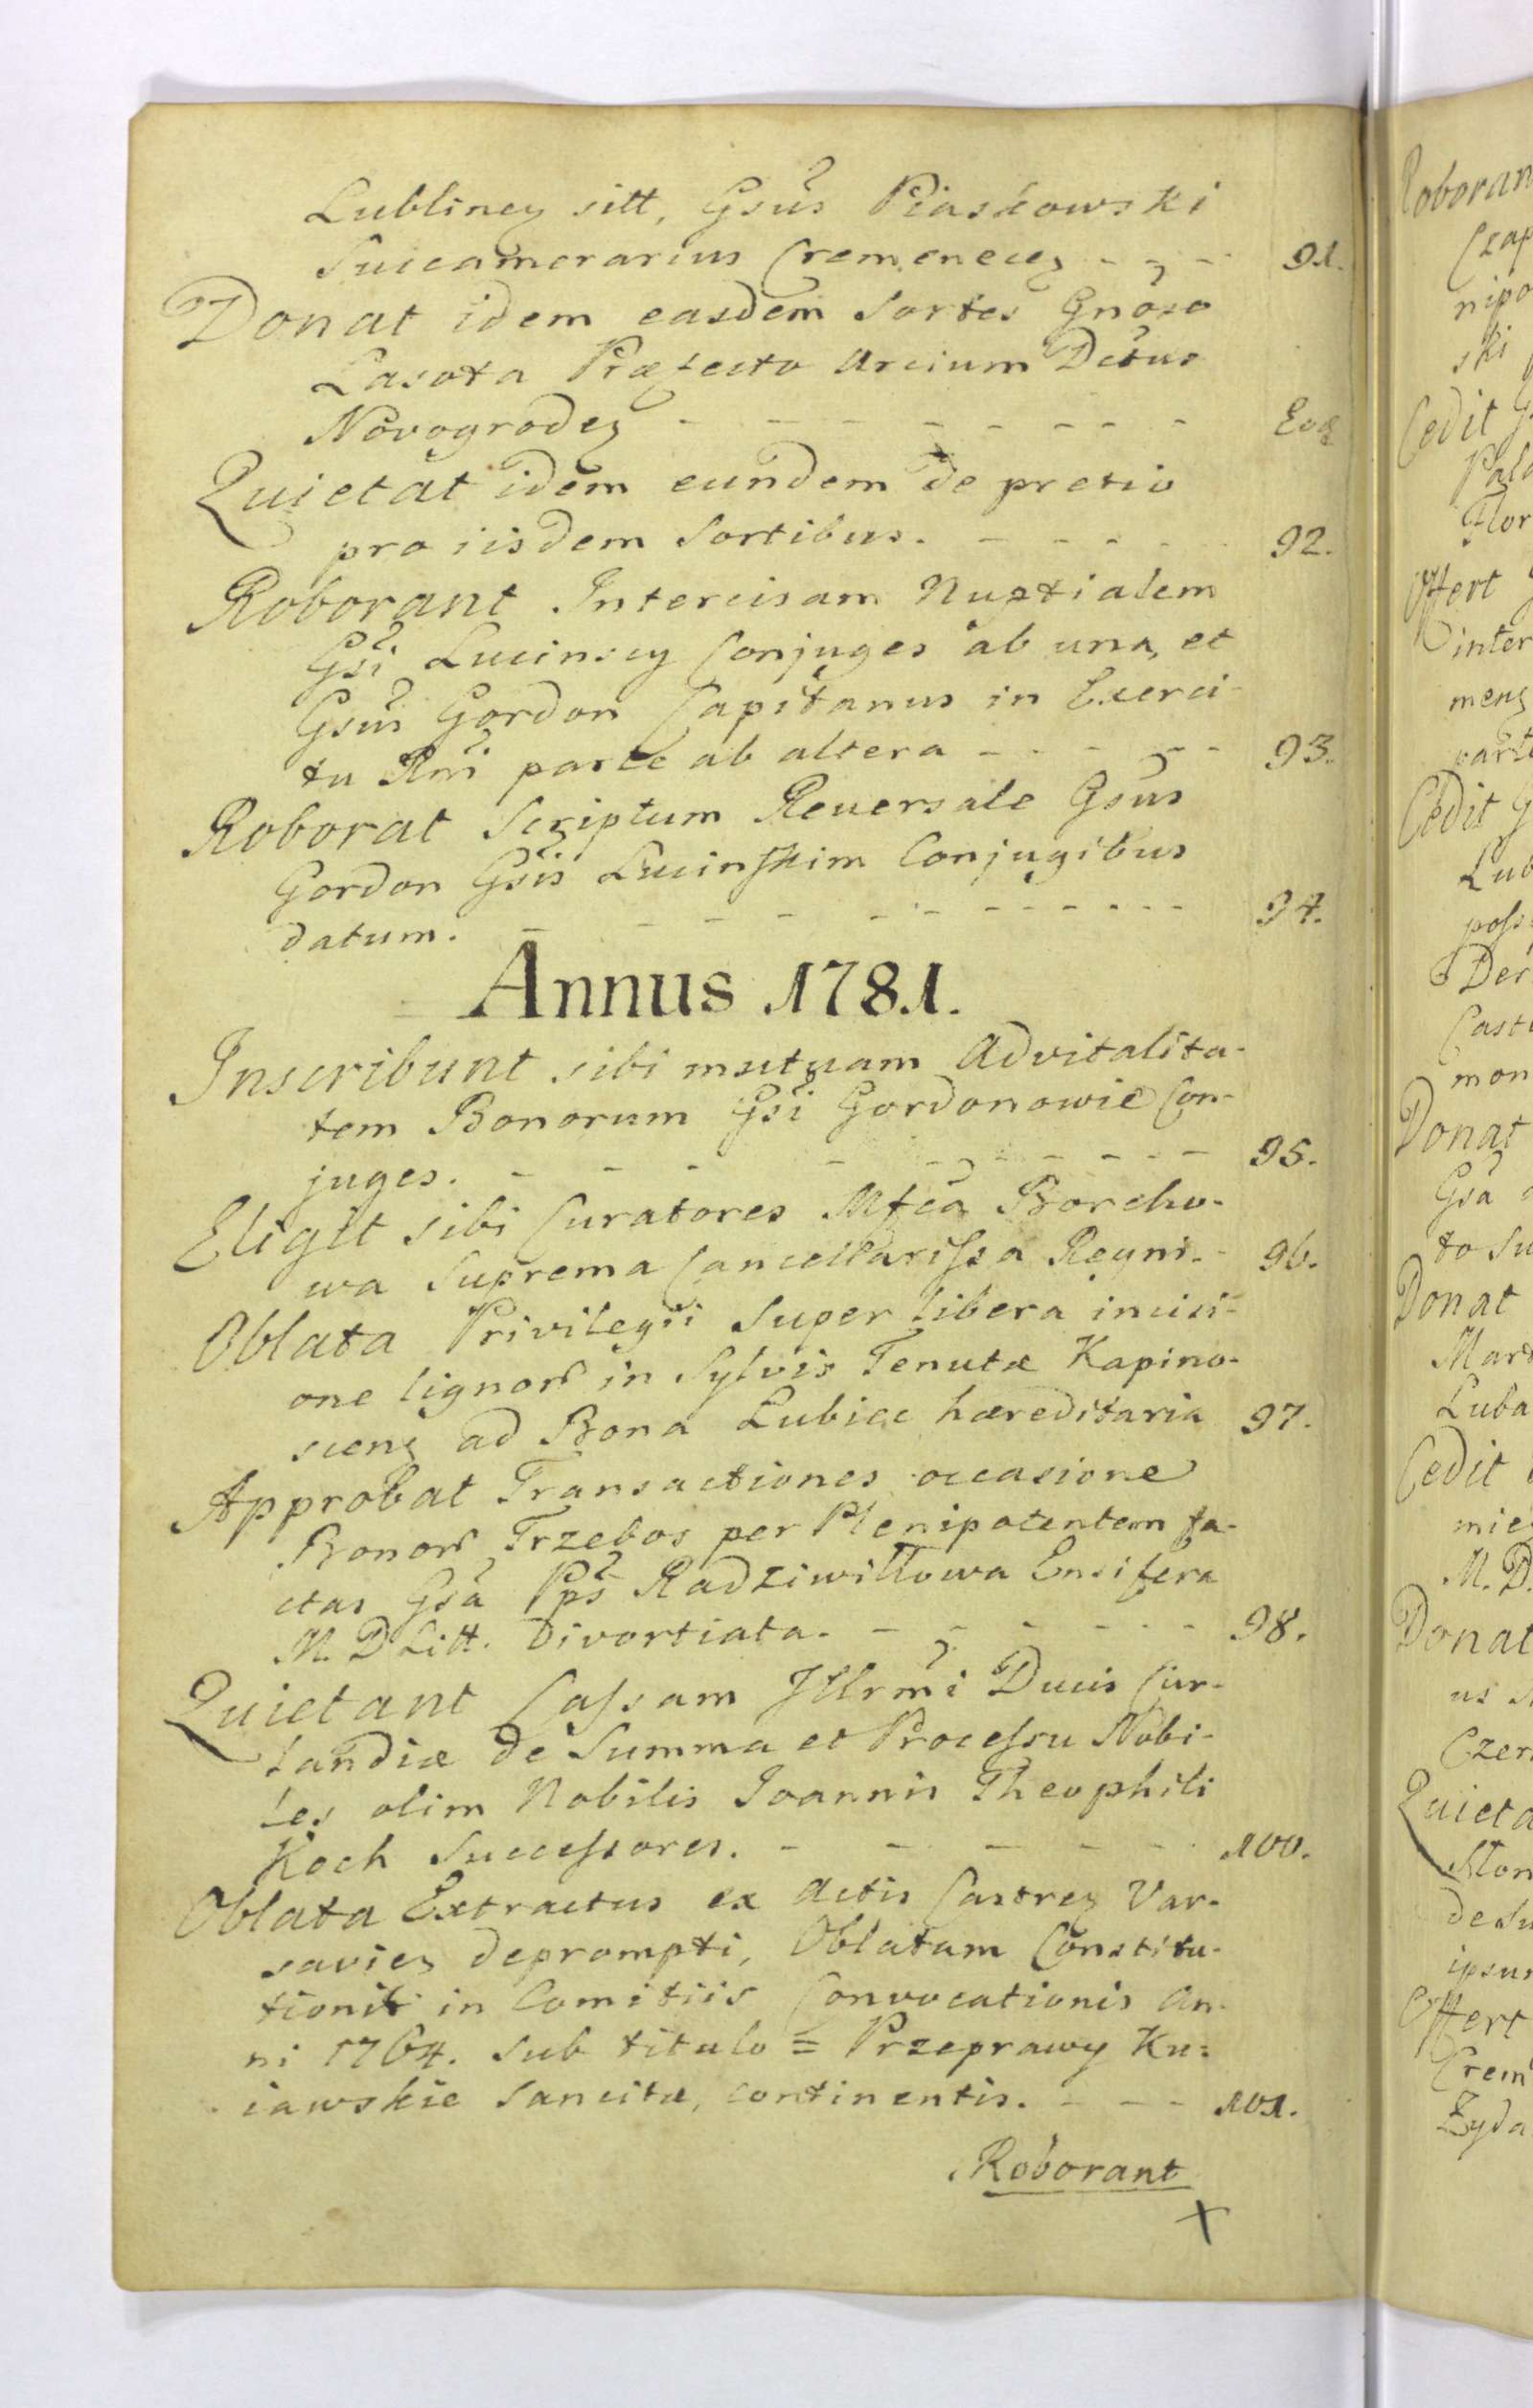 Lubliney sitt, Gsus Piaskowski
Succamerarius Cremenecez - - - 91.
Donat idem easdem Sortes Gnoso
Lasota Præfecto Arcium Dctus
Novogrodez - - - - - - - - Eoq
Quietat idem eundem de pretio
pro iisdem Sortibus. - - - - - 92.
Roborant Intercisam Nuptialem
Gsi Lucinscy Conjuges ab una, et
Gsus Gordon Capitanus in Exerci-
tu Rni parte ab altera - - - - - 93.
Roborat Scriptum Reversale Gsus
Gordon Gsis Lucinskim Conjugibus
datum. - - - - - - - - - - 94.
Annus 1781.
Inscribunt sibi mutuam Advitalita-
tem Bonorum Gsi Gordonowie Con-
juges. - - - - - - - - - - 95.
Eligit sibi Curatores Mfca Borcho-
wa Suprema Cancellarissa Regni. - 96.
Oblata Privilegii Super libera incisi-
one lignor in Sylvis Tenutæ Kapino-
scenz ad Bona Lubiec hæreditaria 97.
Approbat Transactiones occasione
Bonor Trzebos per Plenipotentem fa-
ctas Gsa Pps Radziwiłłowa Ensifera
M. D Litt. Divortiata. - - - - - - 98.
Quietant Cassam Illrmi Ducis Cur-
landiæ de Summa et Processu Nobi-
les olim Nobilis Joannis Theophili
Koch Successores. - - - - - - 100.
Oblata Extractus ex Actis Castrez Var-
saviez deprompti, Oblatam Constitu-
tionis in Comitiis Convocationis An-
ni 1764. sub titulo = Przeprawy Ku=
iawskie Sancitæ, continentis. - - - 101.
Roborant
Roboran
Czap
nipo
ski
Cedit G
Pala
Flor
Offert
inter
menz
parte
Cedit G
Lub
poss
Der
Cast
mon
Donat
Gsa
to Su
Donat
Mar
Luba
Cedit
mie
M. D.
Donat
us
Czer
Quieta
Ston
de Su
ipsu
Offert
Crem
Zyda